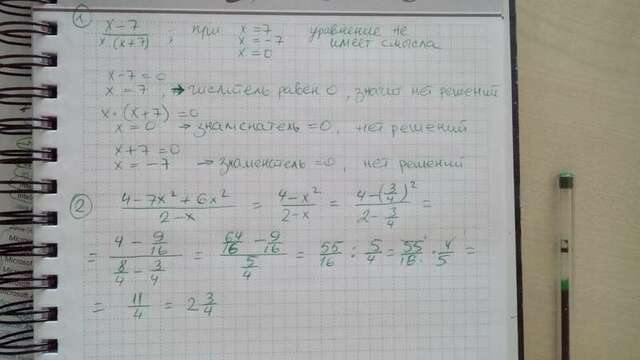 ① x-7 / x·(x+7) ; при x=7 уравнение не
x=-7 имеет смысла
x=0
x-7=0
x=7, → числитель равен 0, значит нет решений
x·(x+7)=0
x=0 → знаменатель=0, нет решений
x+7=0
x=-7 → знаменатель=0, нет решений
② (4-7x²+6x²)/(2-x) = (4-x²)/(2-x) = (4-(3/4)²)/(2-3/4) =
= (4-9/16)/(8/4-3/4) = (64/16-9/16)/(5/4) = 55/16 : 5/4 = 55/16 · 4/5 =
= 11/4 = 2 3/4